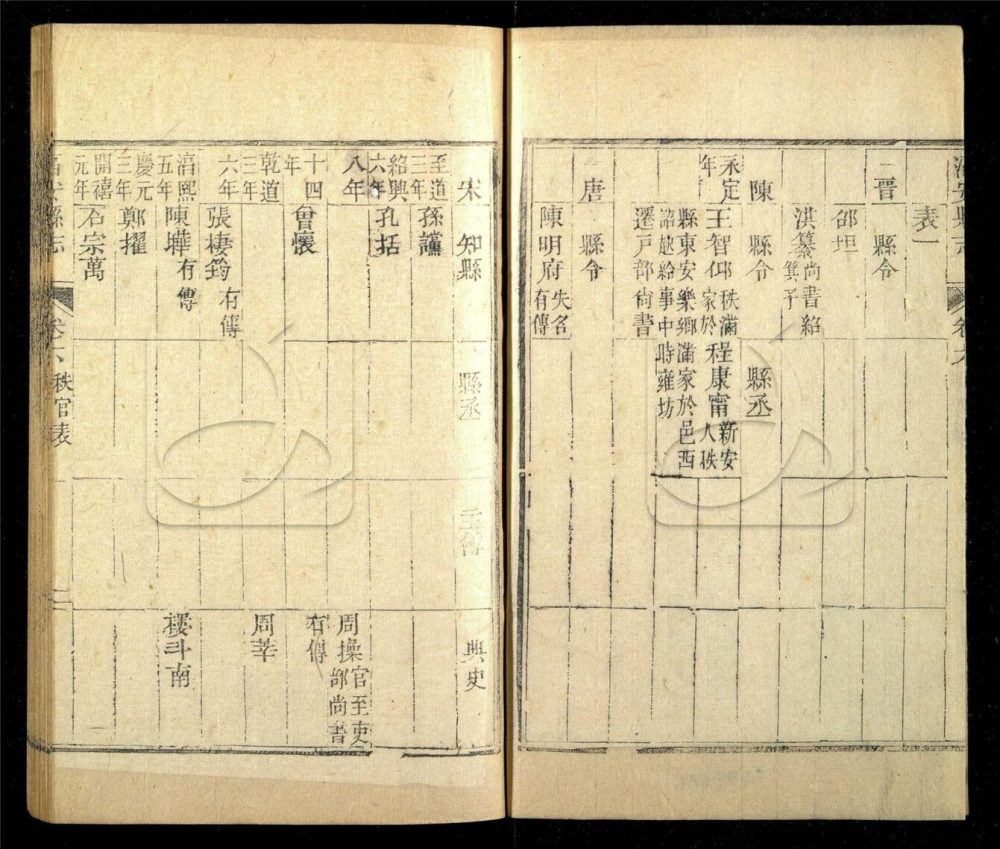 淳安縣志
卷六
表一
晉 縣令
邵坦
洪纂 尚書紹
子
陳 縣令 縣丞
永定年
王智 秩滿家於縣東安樂鄉詔赴給事中遷戶部尚書
程康甯 新安人秩滿家於邑西時雍坊
唐 縣令
陳明府 失名有傳
宋 知縣 縣丞 主簿 典史
至道三年 孫讜
紹興六年 孔括
八年
周操 官至吏部尚書有傳
十四年 曾懷
乾道三年
周莘
六年 張棲筠 有傳
淳熙五年 陳曄 有傳
樓斗南
慶元三年 鄭擢
開禧元年 石宗萬
淳安縣志
卷六 秩官表
二